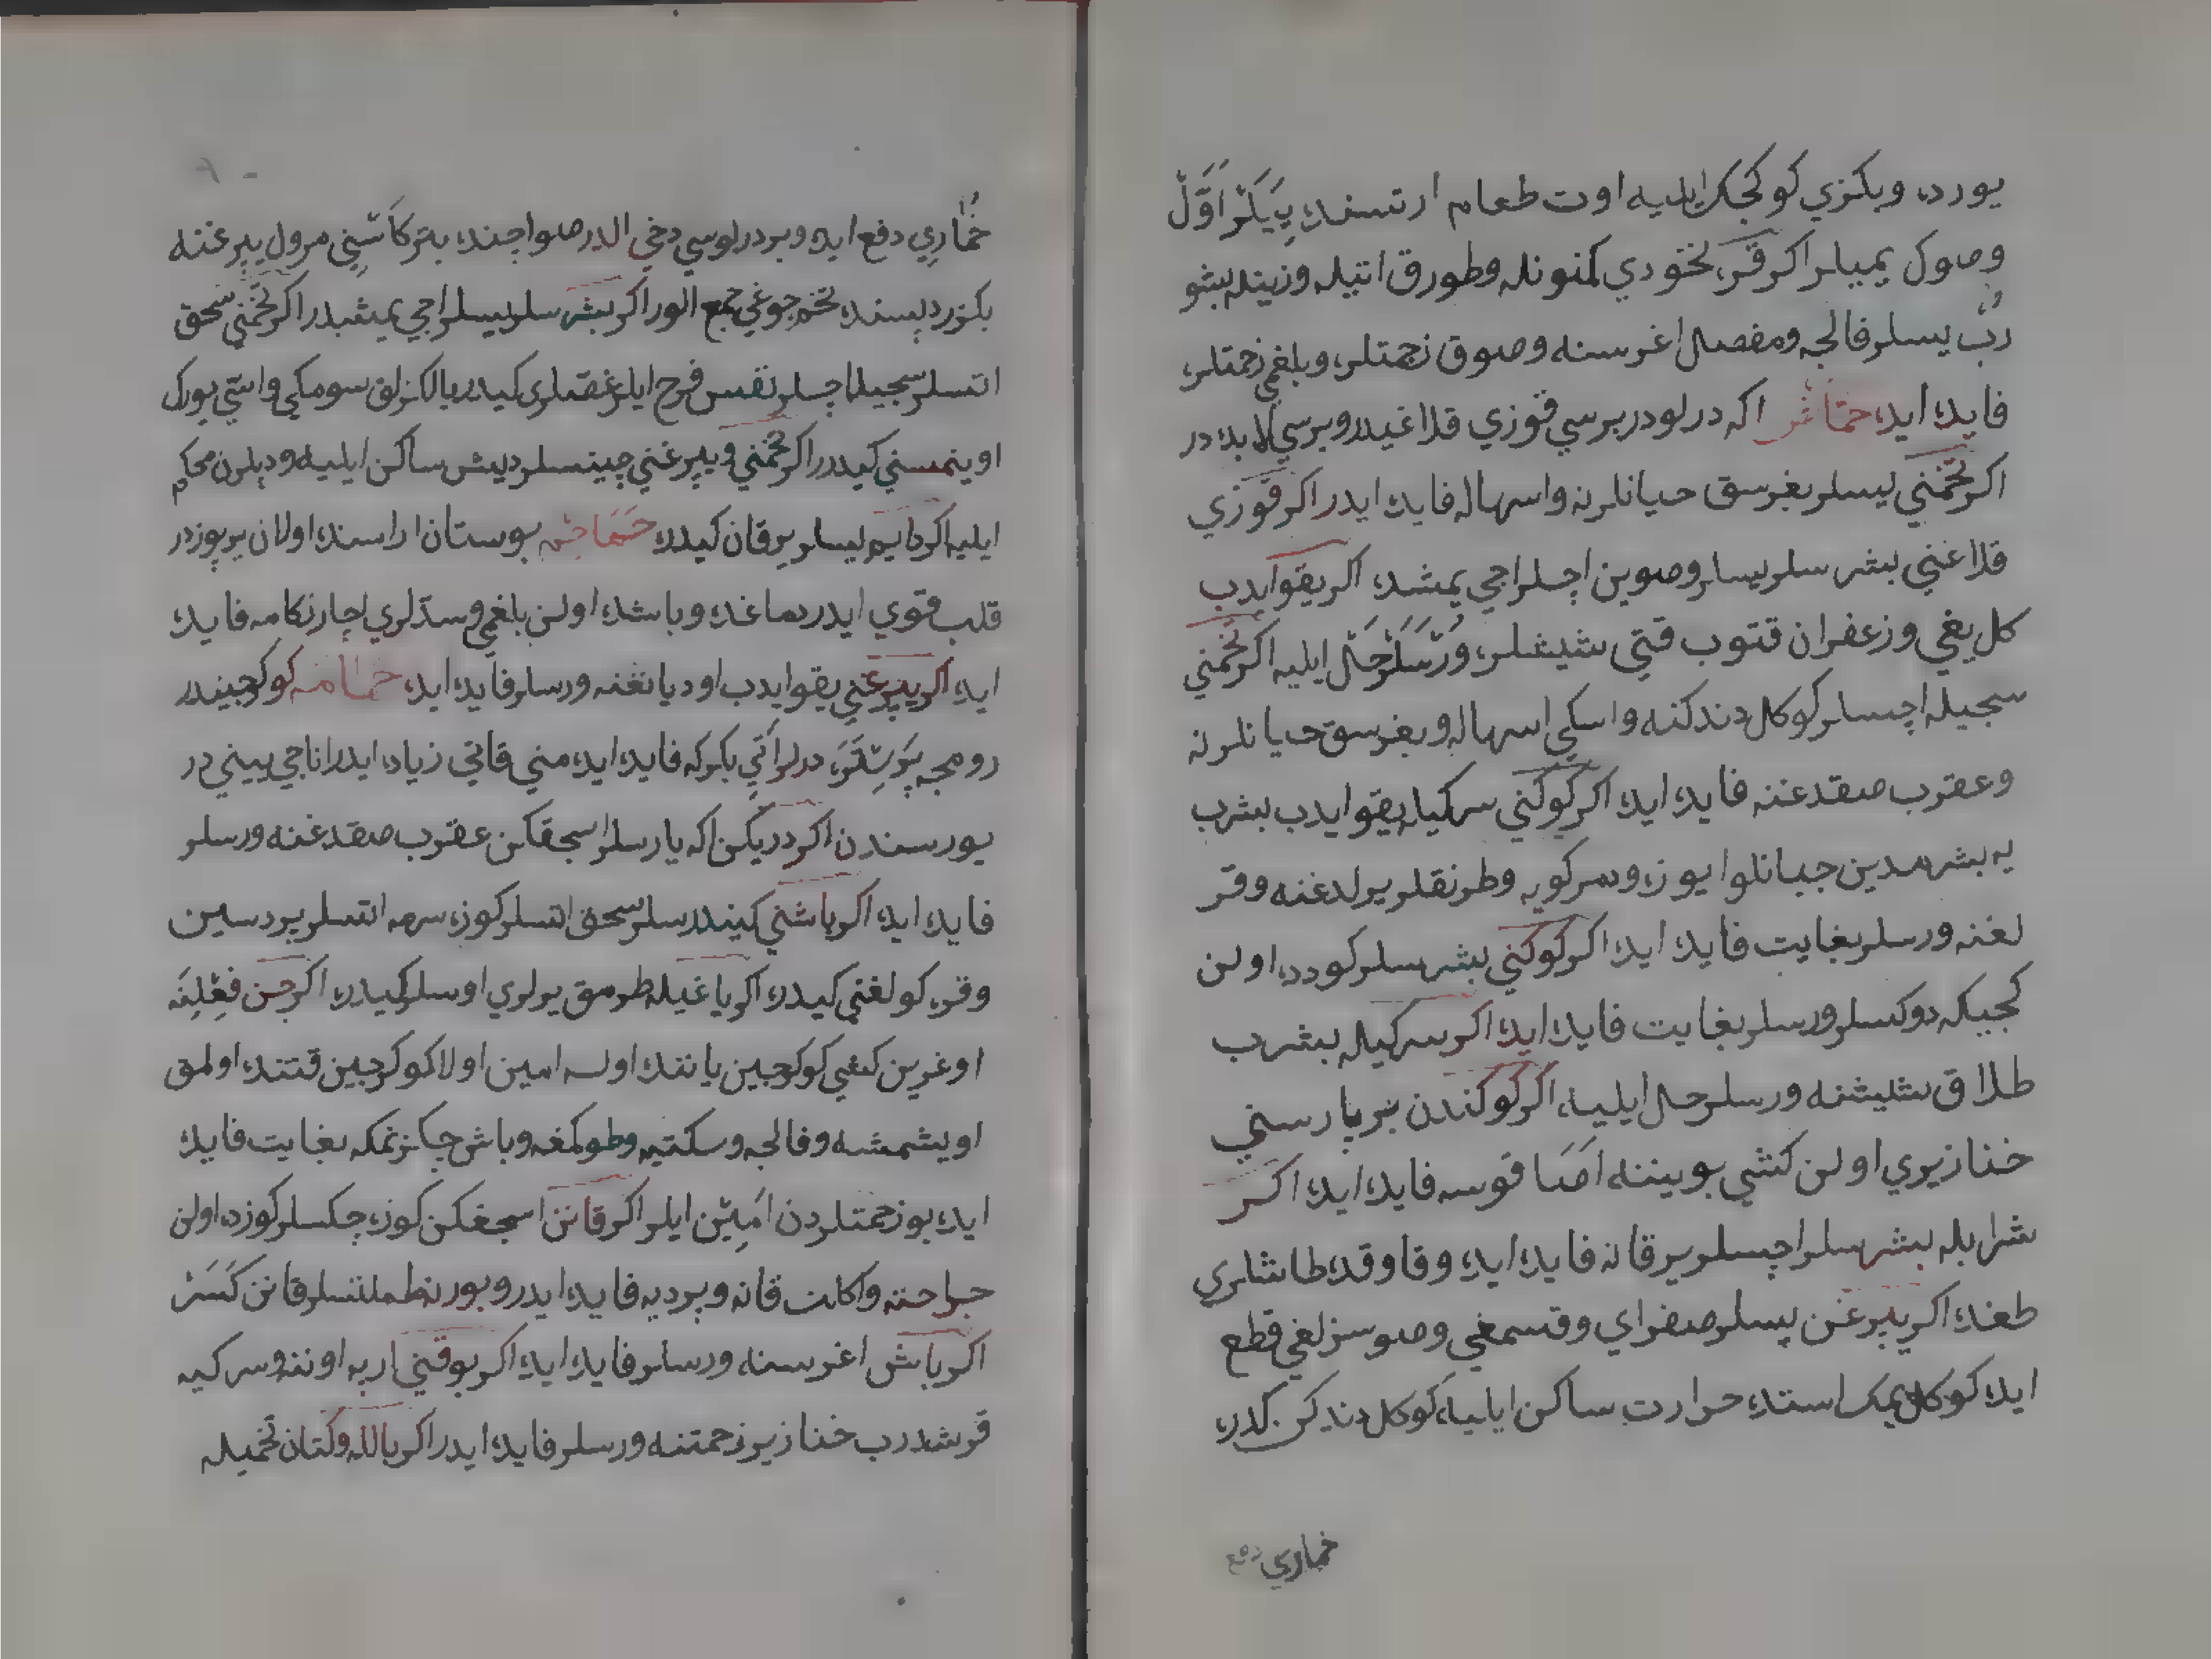 يورد، وبكزي كوكجك ايليه اوت طعام ارتسند، بِيَكَرْ اَوَّلْ
وصوك يميالر اكر قر، نخودي كمنونله وطورق اتيله وزيتله بشو
رُب يسلر فالجه ومفصل اغرسنه وصوق زحمتلر، وبلغمي زحمتلر،
فايد، ايد، حماض اكه درلودر برسي قوزي قلاغيدر وبرسي در
اكر تخمني ليسلر بغرسق حيانلرنه واسهاله فايد، ايدر اكر قوزي
قلاغني بشرسلر يسلر وصوين اچلر اجي يمشد، اكر يقو ايدب
كل يغي وزعفران قتوب قتي شيشلر، وُرْسَلَرْ حَلْ ايليه اكر تخمني
سجيله اچسلر كوكل دندكنه واسكي اسهاله وبغرسق حيانلرنه
وعقرب صقدغنه فايد، ايد، اكر كوكني سركيله يقو ايدب بشرب
يه بشرمدين جبانلو ايوز، ودمركويه وطرنقلر يرلدغنه وقر
لغنه ورسلر بغايت فايد، ايد، اكر كوكني بشرسلر كودد، اولن
كجيكه دوكسلر ورسلر بغايت فايد، ايد، اكر سركيله بشرب
طلاق شيشنه ورسلر حل ايليه، اكر كوكندن بر پارسني
خنازيري اولن كشي بوينه اصا قوسه فايد، ايد، اكر
شرابله بشرسلر اچسلر يرقانه فايد، ايد، وقاوقد، طاشلري
طغد، اكر يپرغن يسلر صفراي وقسمغي وصوسزلغي قطع
ايد، كوكل يمك استد، حرارت ساكن ايليا، كوكل دندكن كدر،
خماري دفع
خُمّارِي دفع ايد، وبر درلوسي دخي الدر صو اچند، بتر كاَسْنِي مرول يپرغنه
بكزر دپسند، تخم جوغي جمع الور اكر بشرسلر يسلر اجي يمشبدر اكر تخمني سحق
اتسلر سجيله اچسلر نفس فرح ايلر غصه لري كيدر يالكزلق سومكي واستي يورك
اوينمسني كيدر اكر تخمني ويپرغني چينسلر ديش ساكن ايليه وديلرن محكم
ايليه اكر دايم يسلر يرقان كيدر، حَمَاحِم بوستان اراسند، اولان بر يوزدر
قلب قوي ايدر دماغد، وباشد، اولن بلغمي وسدلري اچار زكامه فايد،
ايد، اكر يپرغني يقو ايدب اود يانغنه ورسلر فايد، ايد، حمامه كوكرجيندر
رومجه پَرِسْتَرَ، درلر اَتِي بكركه فايد، ايد، مني قاني زياد، ايدر اناجي بيني در
يورسندن اكر دريكن اكه يارسلر اسجقكن عقرب صقدغنه ورسلر
فايد، ايد، اكر باشني كيندرسلر سحق اتسلر كوز، سرمه اتسلر پرد سين
وقر، كولغني كيدر، اكر ياغيله طرمق يرلري اوسلر كيدر، اكر جن فِعْلِنَه
اوغرين كشي كوكرجين ياننده اولسه امين اولا كوكرجين قتند، اولمق
اويشمشه وفالجه وسكتيه وطوكمغه وباش چكزنمكه بغايت فايد،
ايد، بو زحمتلردن اَمِيْن ايلر اكر قانن اسجغكن كوز، چكسلر كوزد، اولن
جراحته واكلن قانه وپرديه فايد، ايدر وبورنه طملتسلر قانن كَسَرْ
اكر باش اغرسنه ورسلر فايد، ايد، اكر بوقني ارپه اوننه وسركيه
قرشدرب خنازير زحمتنه ورسلر فايد، ايدر اكر باللّه وكتان تخميله